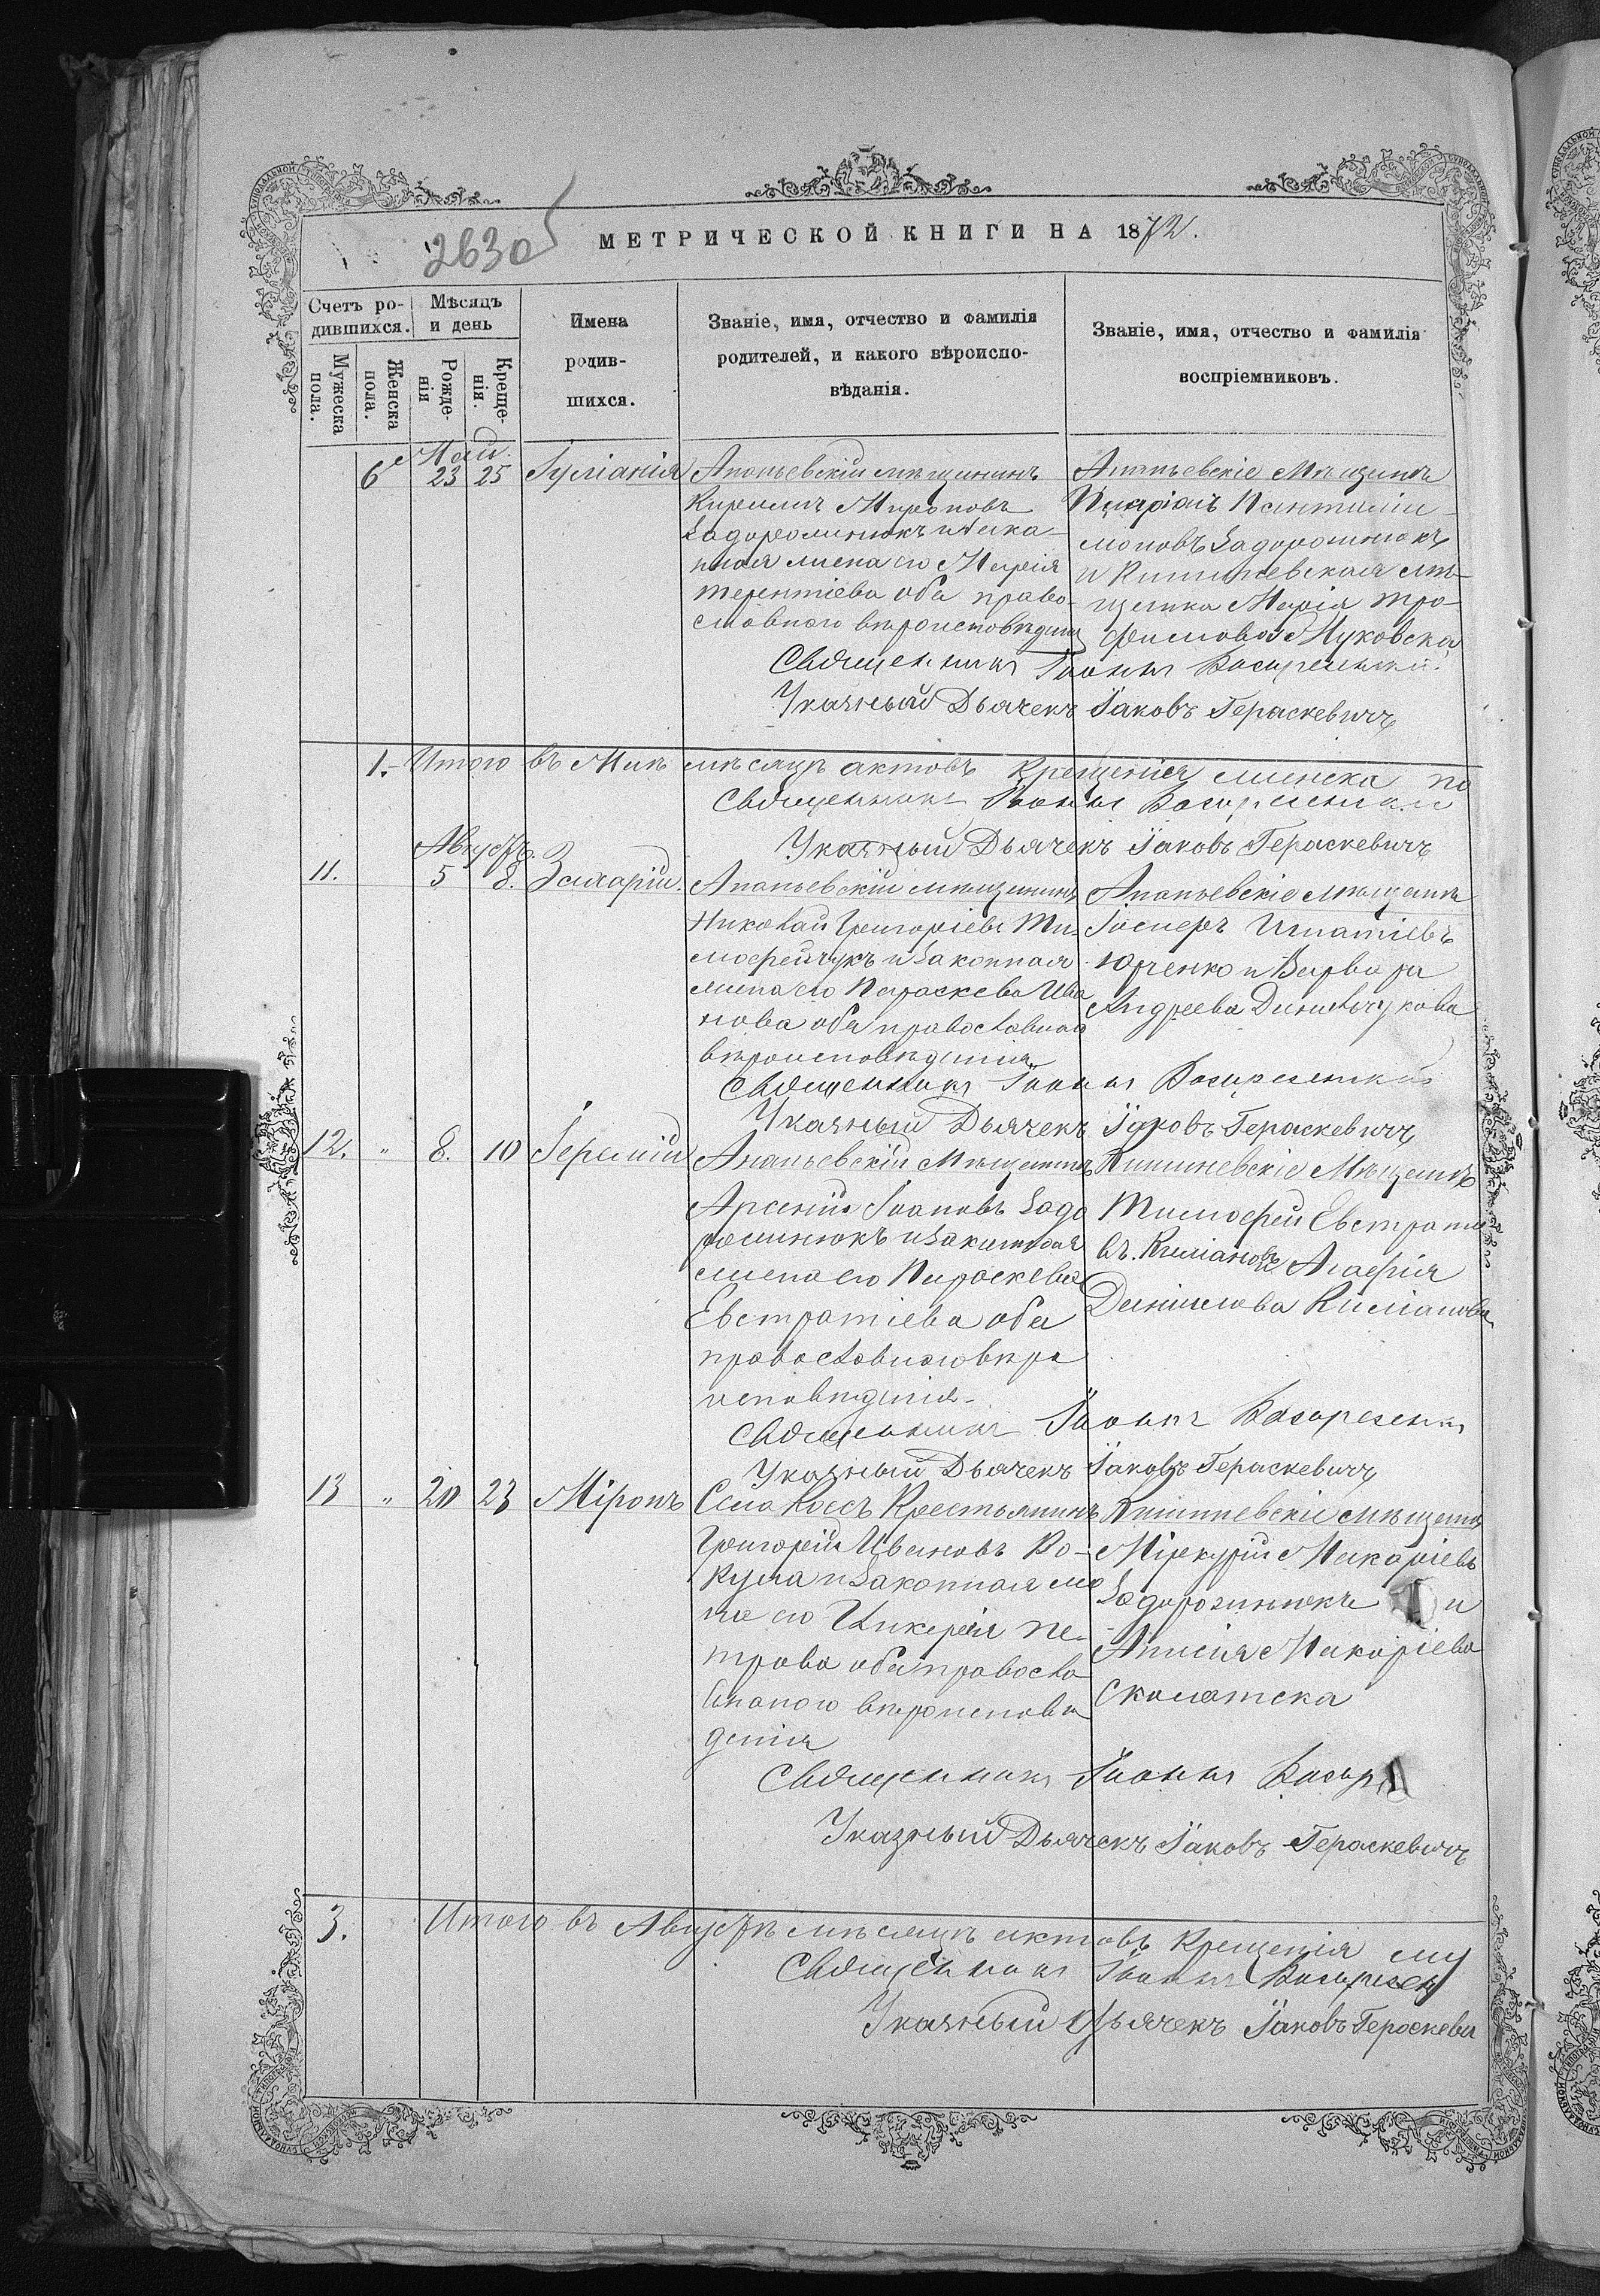 26305
МЕТРИЧЕСКОЙ КНИГИ НА 1872.
Счетъ родившихся.
Мѣсяцъ и день
Мужеска пола.
Женска пола.
Рожденія
Крещенія.
Имена
родив-
шихся.
Званіе, имя, отчество и фамилія
родителей, и какого вѣроиспо-
вѣданія.
Званіе, имя, отчество и фамилія
воспріемниковъ.
Май.
6 23 25 Іуліанія
Ананьевскій мѣщанинъ
Кириллъ Мироновъ
Задорожнюкъ и зако-
нная жена его Марія
Терентіева оба право-
славнаго вѣроисповѣданія
Ананьевскіе мѣщане
Пантилии-
моновъ Задорожнюкъ
и Кишиневская мѣ-
щанка Марія Тро-
фимова Муковска
Священникъ Іоаннъ Воскресенскій.
Указный Дьячекъ Іаковъ Гераскевичъ
1. Итого въ Маѣ мѣсяцѣ актовъ крещенія женска по
Священникъ Іоаннъ Воскресенскій
Указный Дьячекъ Іаковъ Гераскевичъ
Августъ.
11. 5 8. Захарій.
Ананьевскій мѣщанинъ
Николай Григоріевъ Ти-
мофейчукъ и законная
жена его Параскева Ива
нова оба православнаго
вѣроисповѣданія
Ананьевскіе мѣщане
Игнатіевъ
Юрченко и Варвара
Андреева
Священникъ Іоаннъ Воскресенскій
Указный Дьячекъ Іаковъ Гераскевичъ
12. " 8. 10 Іеремій
Ананьевскій мѣщанинъ
Арсеній Іоановъ Задо
рожнюкъ и законная
жена его Параскева
Евстратіева оба
православнаго вѣро
исповѣданія.
Кишиневскіе мѣщане
Тимофей Евстратіе
въ. Киліановъ Агафія
Данилова Киліанова
Священникъ Іоаннъ Воскресенск
Указный Дьячекъ Іаковъ Гераскевичъ
13 " 20 23 Міронъ
Села Крестьянинъ
Григорій Ивановъ Ко-
куша и законная же
на его Пе-
трова оба правосла
внаго вѣроисповѣ
данія
Кишиневскіе мѣщане
Міркурій Макаріевъ
Задорожнюкъ и
Анисія Макаріева
Священникъ Іоаннъ Воскр
Указный Дьячекъ Іаковъ Гераскевичъ
3. Итого въ Августѣ мѣсяцѣ актовъ крещенія му
Священникъ Іоаннъ Воскресен
Указный Дьячекъ Іаковъ Гераскеви